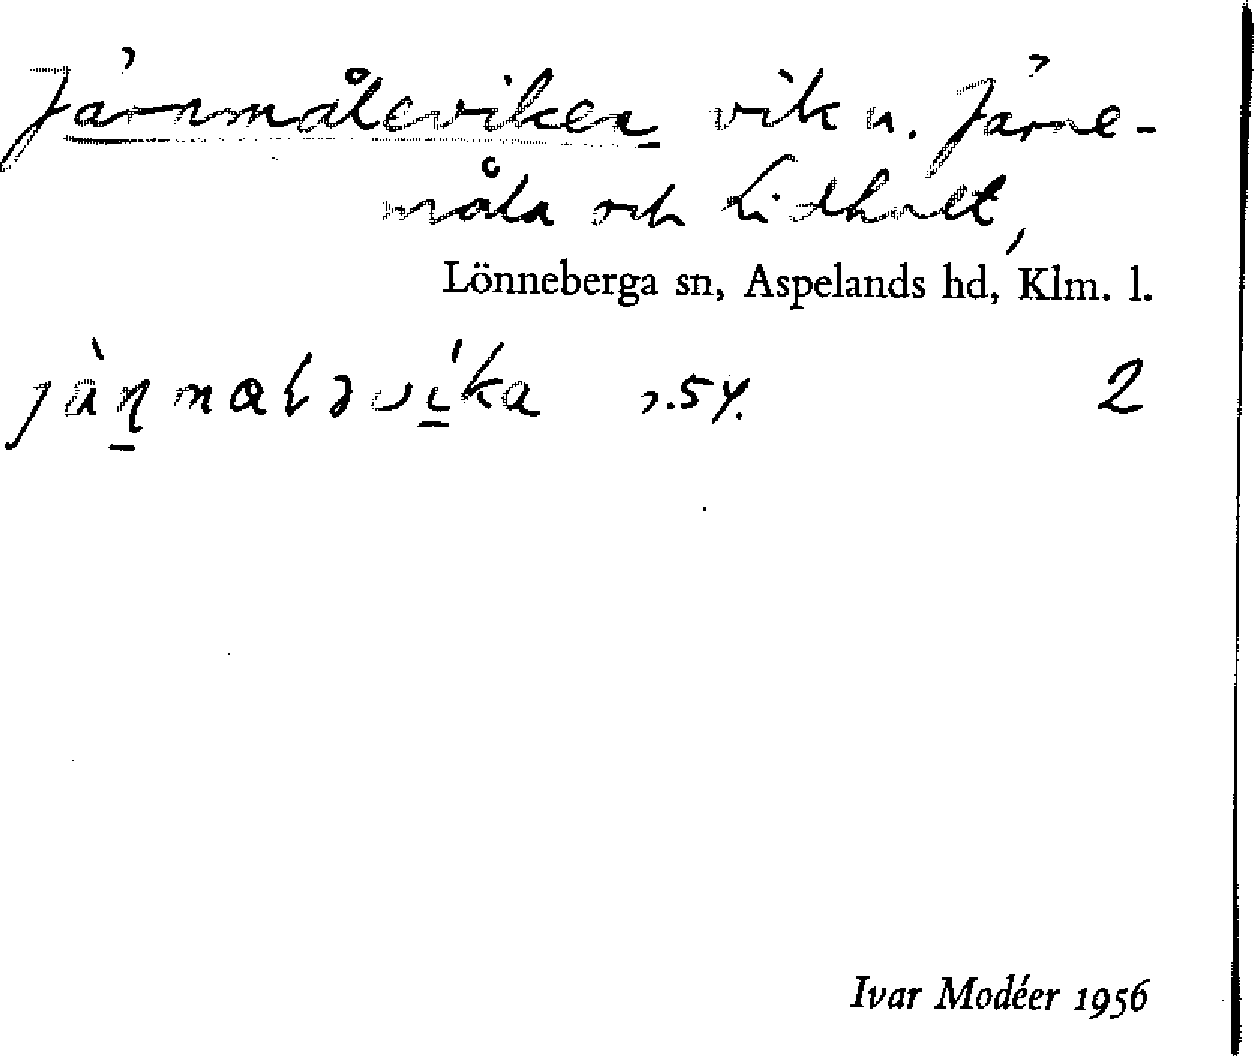 Järnmåleviken vik u. Järne-
måla och Lidhult,
Lönneberga sn, Aspelands hd, Klm. l.
2
Ivar Modéer 1956